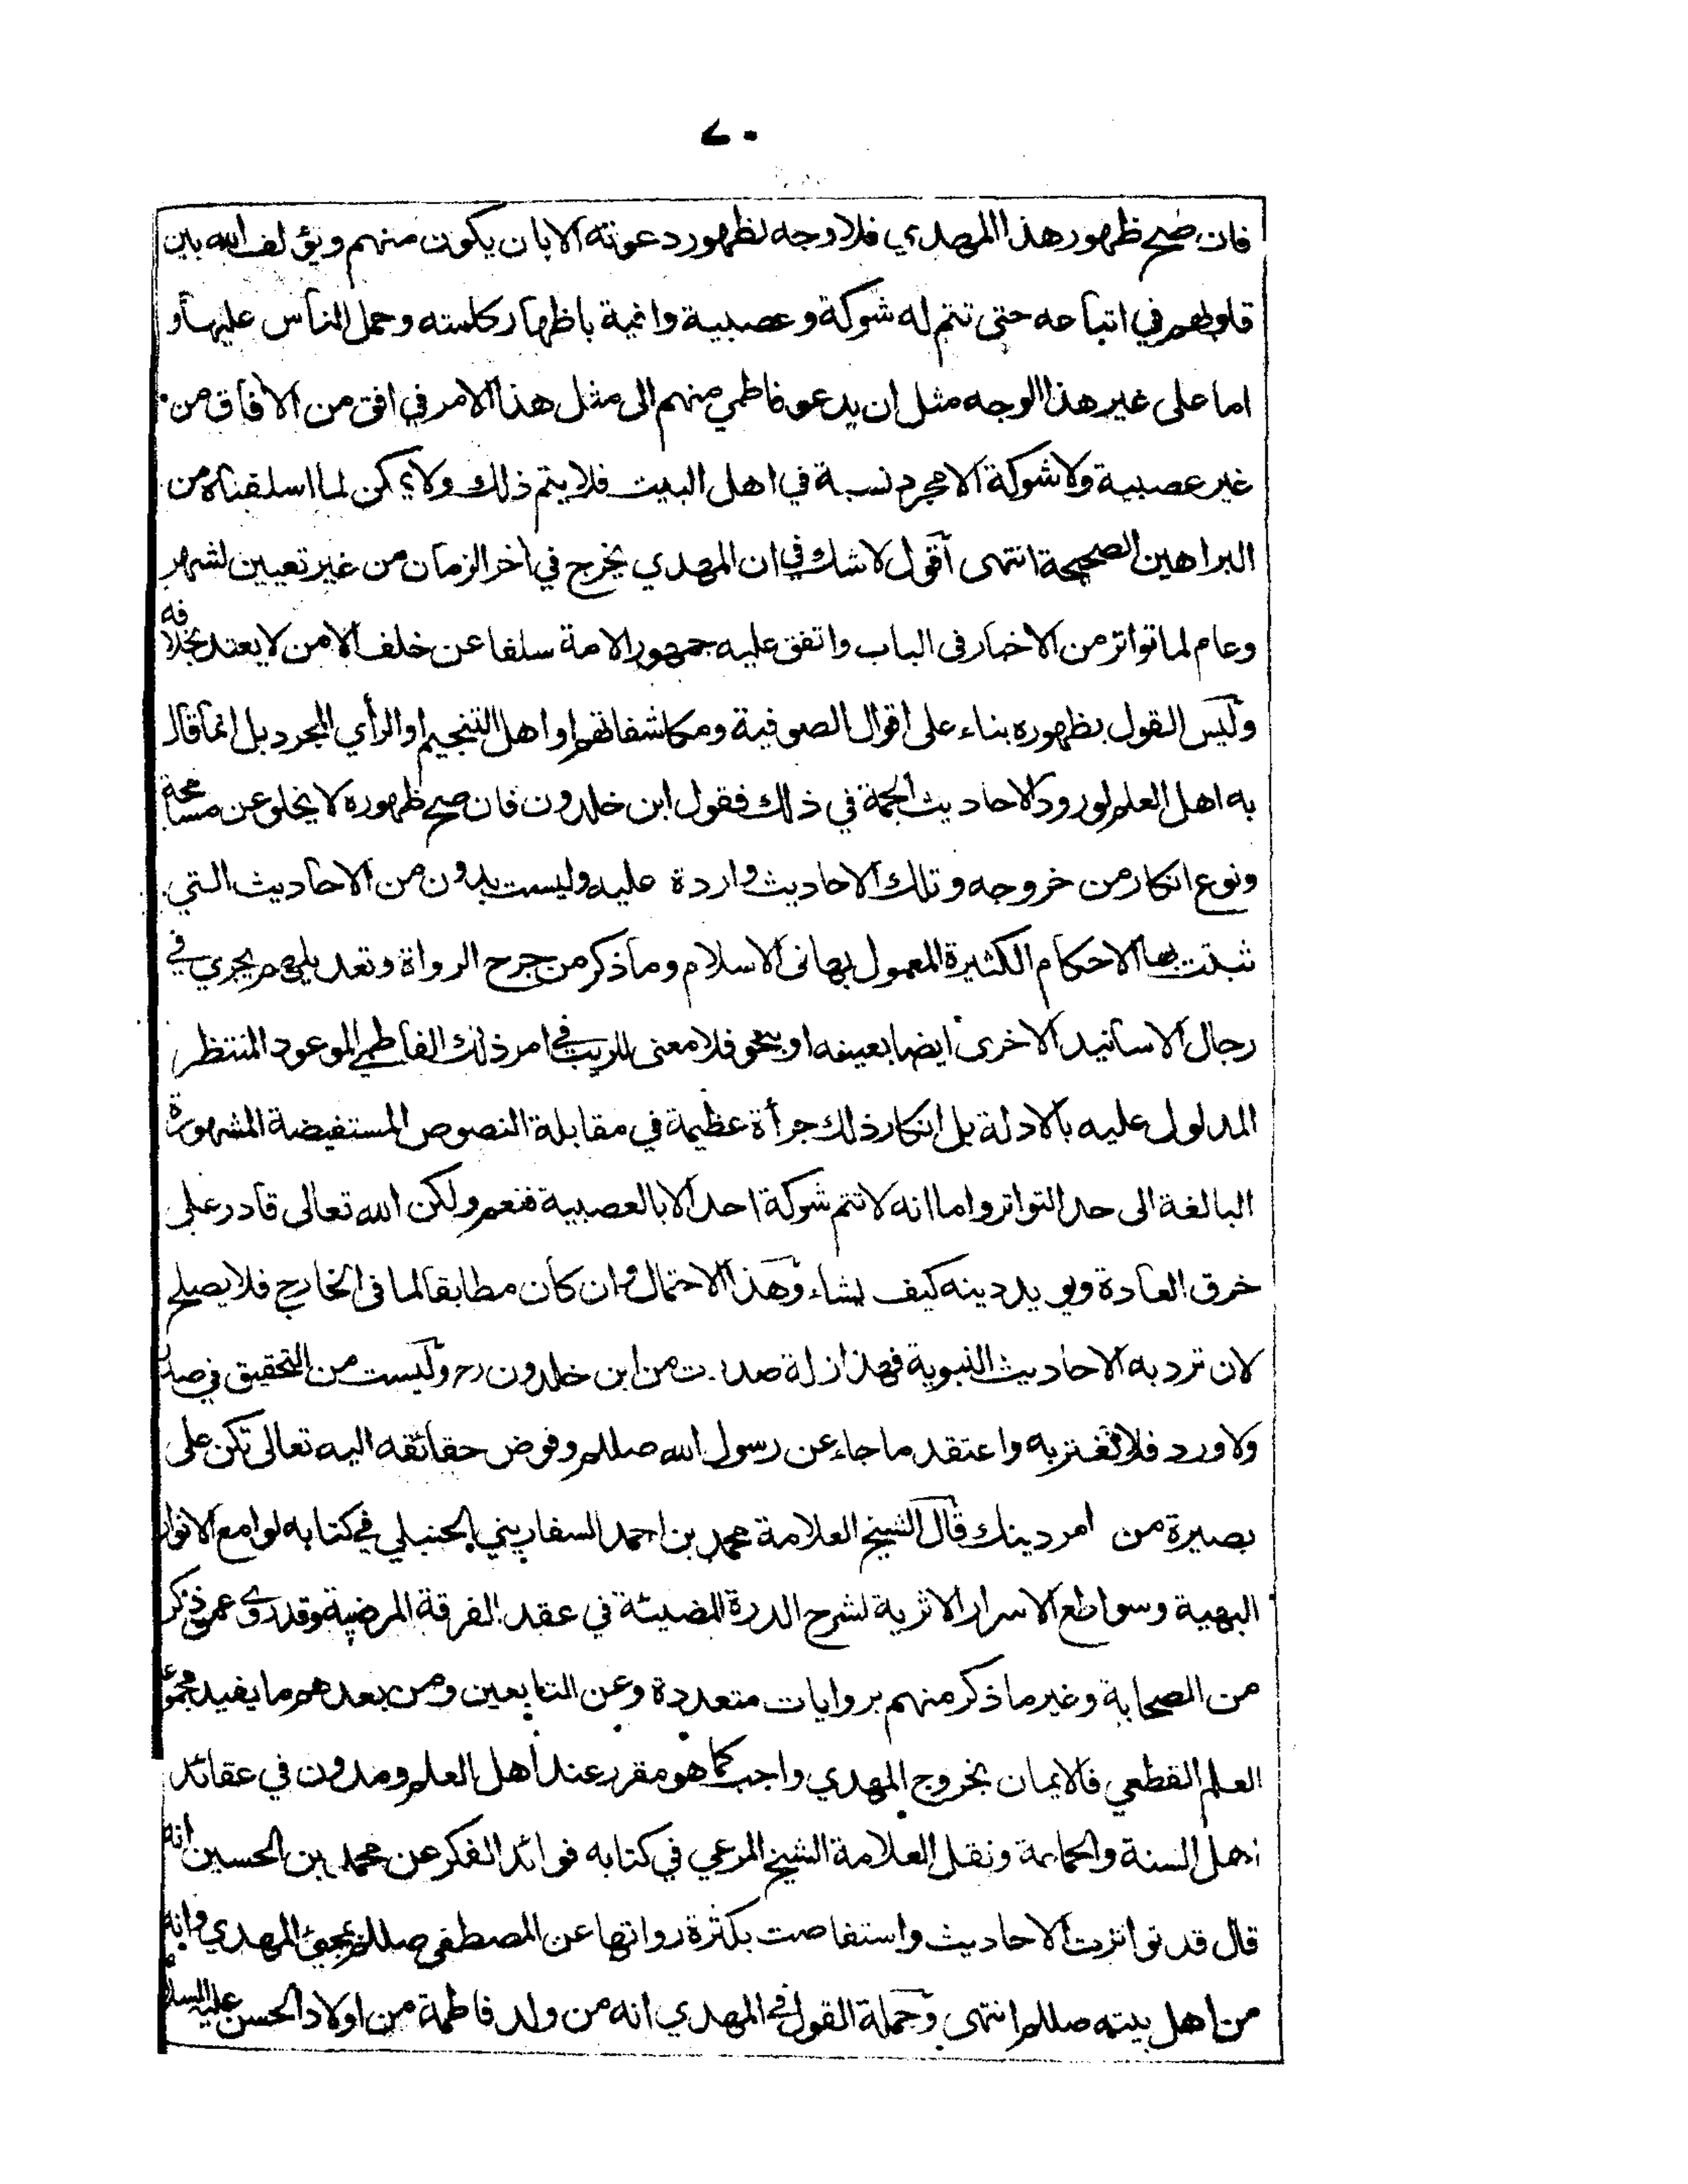 ٧٠
فان صح ظهور هذا المهدي فلا وجه لظهور دعوته الا بان يكون منهم ويؤلف الله بين
قلوبهم في اتباعه حتى تتم له شوكة وعصبية وافية باظهار كلمته وحمل الناس عليها و
اما على غير هذا الوجه مثل ان يدعو فاطمي منهم الى مثل هذا الامر في افق من الافاق من
غير عصبية ولا شوكة الا مجرد نسبة في اهل البيت فلا يتم ذلك ولا يمكن لما اسلفناه من
البراهين الصحيحة انتهى اقول لا شك في ان المهدي يخرج في اخر الزمان من غير تعيين لشهر
وعام لما تواتر من الاخبار في الباب واتفق عليه جمهور الامة سلفا عن خلف الا من لا يعتد بخلافه
وليس القول بظهوره بناء على اقوال الصوفية ومكاشفاتهم او اهل التنجيم او الرأي المجرد بل انما قال
به اهل العلم لورود الاحاديث الجمة في ذلك فقول ابن خلدون فان صح ظهوره لا يخلو عن مسامحة
ونوع انكار من خروجه وتلك الاحاديث واردة عليه وليست بدون من الاحاديث التي
ثبتت بها الاحكام الكثيرة المعمول بها في الاسلام وما ذكر من جرح الرواة وتعديلهم يجري في
رجال الاسانيد الاخرى ايضا بعينه او بنحو فلا معنى للريب في امر ذلك الفاطمي الموعود المنتظر
المدلول عليه بالادلة بل انكار ذلك جرأة عظيمة في مقابلة النصوص المستفيضة المشهورة
البالغة الى حد التواتر واما انه لا تتم شوكة احد الا بالعصبية فنعم ولكن الله تعالى قادر على
خرق العادة ويويد دينه كيف يشاء وهذا الاحتمال وان كان مطابقا لما في الخارج فلا يصلح
لان ترد به الاحاديث النبوية فهذا زلة صدرت من ابن خلدون رح وليست من التحقيق في صدر
ولا ورد فلا تغتر به واعتقد ما جاء عن رسول الله صللم وفوض حقائقه اليه تعالى تكن على
بصيرة من امر دينك قال الشيخ العلامة محمد بن احمد السفاريني الحنبلي في كتابه لوامع الانوار
البهية وسواطع الاسرار الاثرية لشرح الدرة المضيئة في عقد الفرقة المرضية وقد روي عمن ذكر
من الصحابة وغير ما ذكر منهم بروايات متعددة وعن التابعين ومن بعدهم ما يفيد مجموعه
العلم القطعي فالايمان بخروج المهدي واجب كما هو مقرر عند اهل العلم ومدون في عقائد
اهل السنة والجماعة ونقل العلامة الشيخ المرعي في كتابه فوائد الفكر عن محمد بن الحسين انه
قال قد تواترت الاحاديث واستفاضت بكثرة رواتها عن المصطفى صللم بمجئ المهدي وانه
من اهل بيته صللم انتهى وجملة القول في المهدي انه من ولد فاطمة من اولاد الحسن عليه السلام